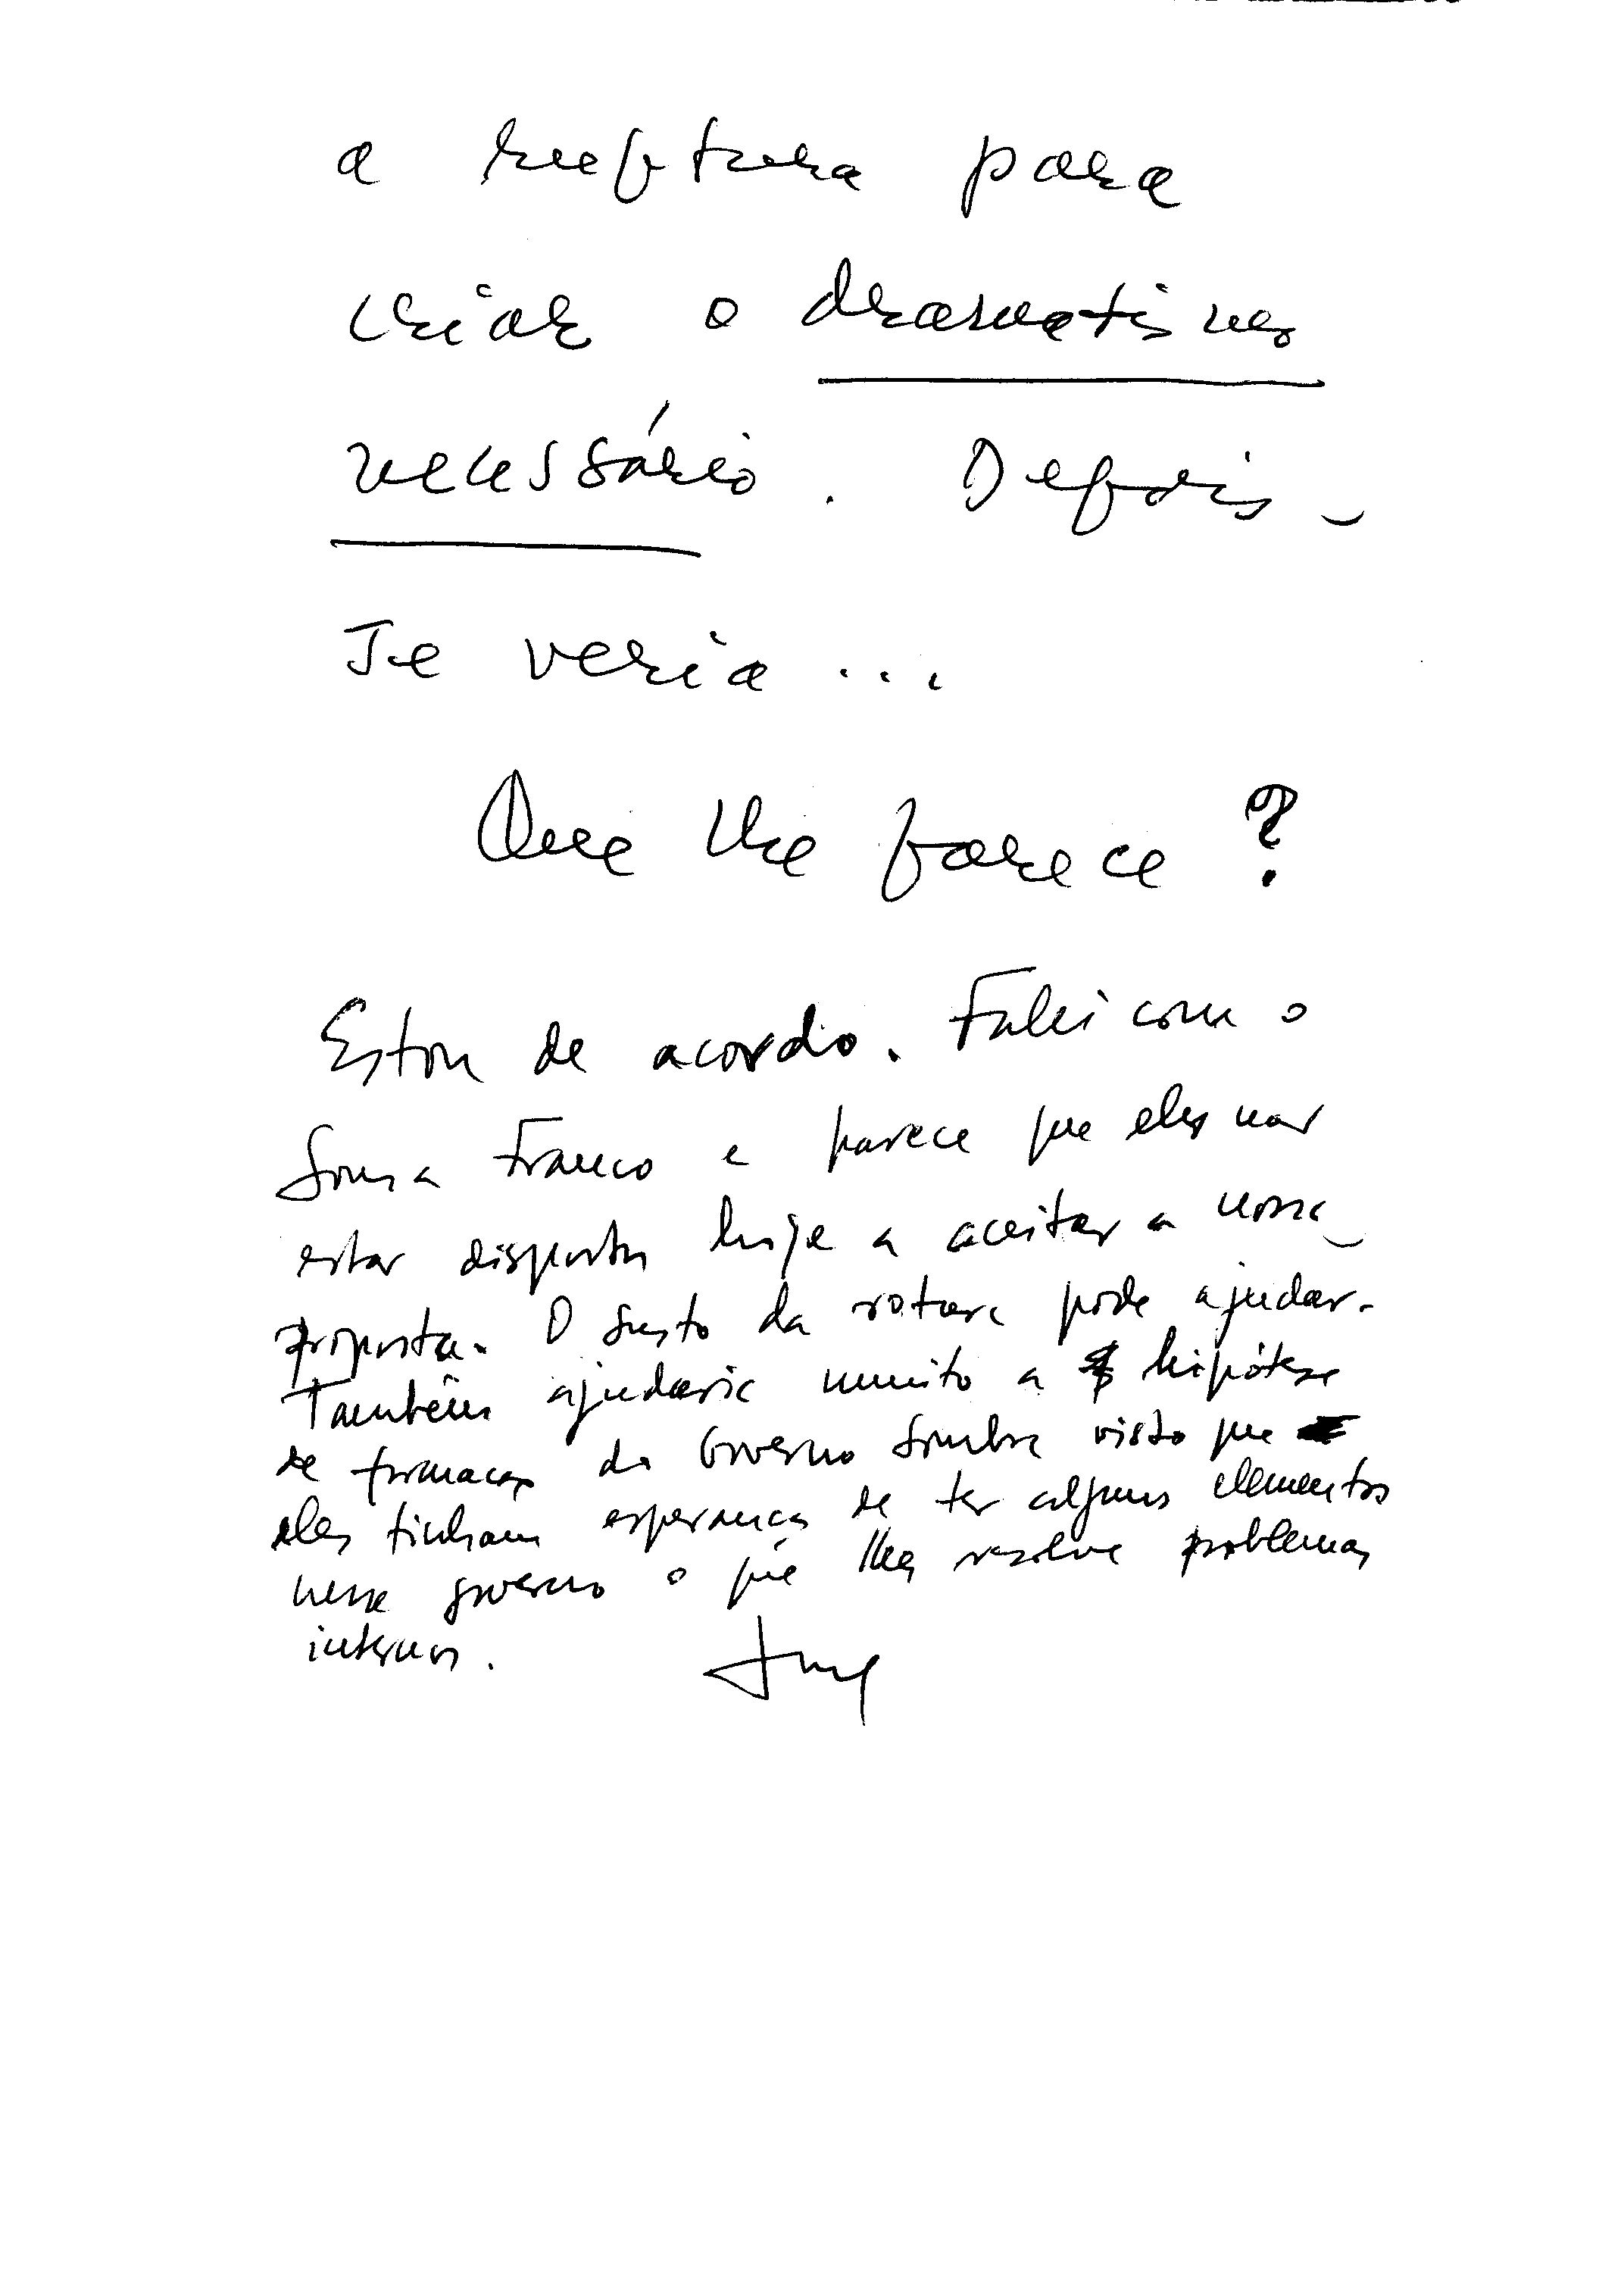 a ruptura para
criar o dramatismo
necessário. Depois
se veria...
Que lhe parece?
Estou de acordo. Falei com o
Sousa Franco e parece que eles não
estão dispostos hoje a aceitar a nossa
proposta. O susto da rotura pode ajudar.
Também ajudaria muito a hipótese
de formação do Governo Sombra visto que
eles tinham esperança de ter alguns elementos
nesse governo o que lhes resolve problemas
internos.